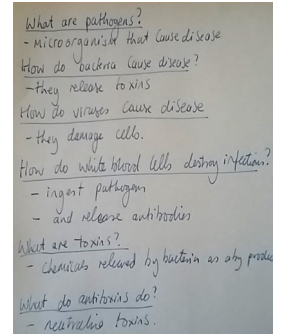 What are pathogens?
- Microorganism that cause disease
How do bacteria cause disease?
- they release toxins
How do viruses cause disease
- they damage cells.
How do white blood cells destroy infections?
- ingest pathogen
- and release antibodies
What are toxins?
- chemicals released by bacteria as a by produc
What do antitoxins do?
- neutralise toxins.